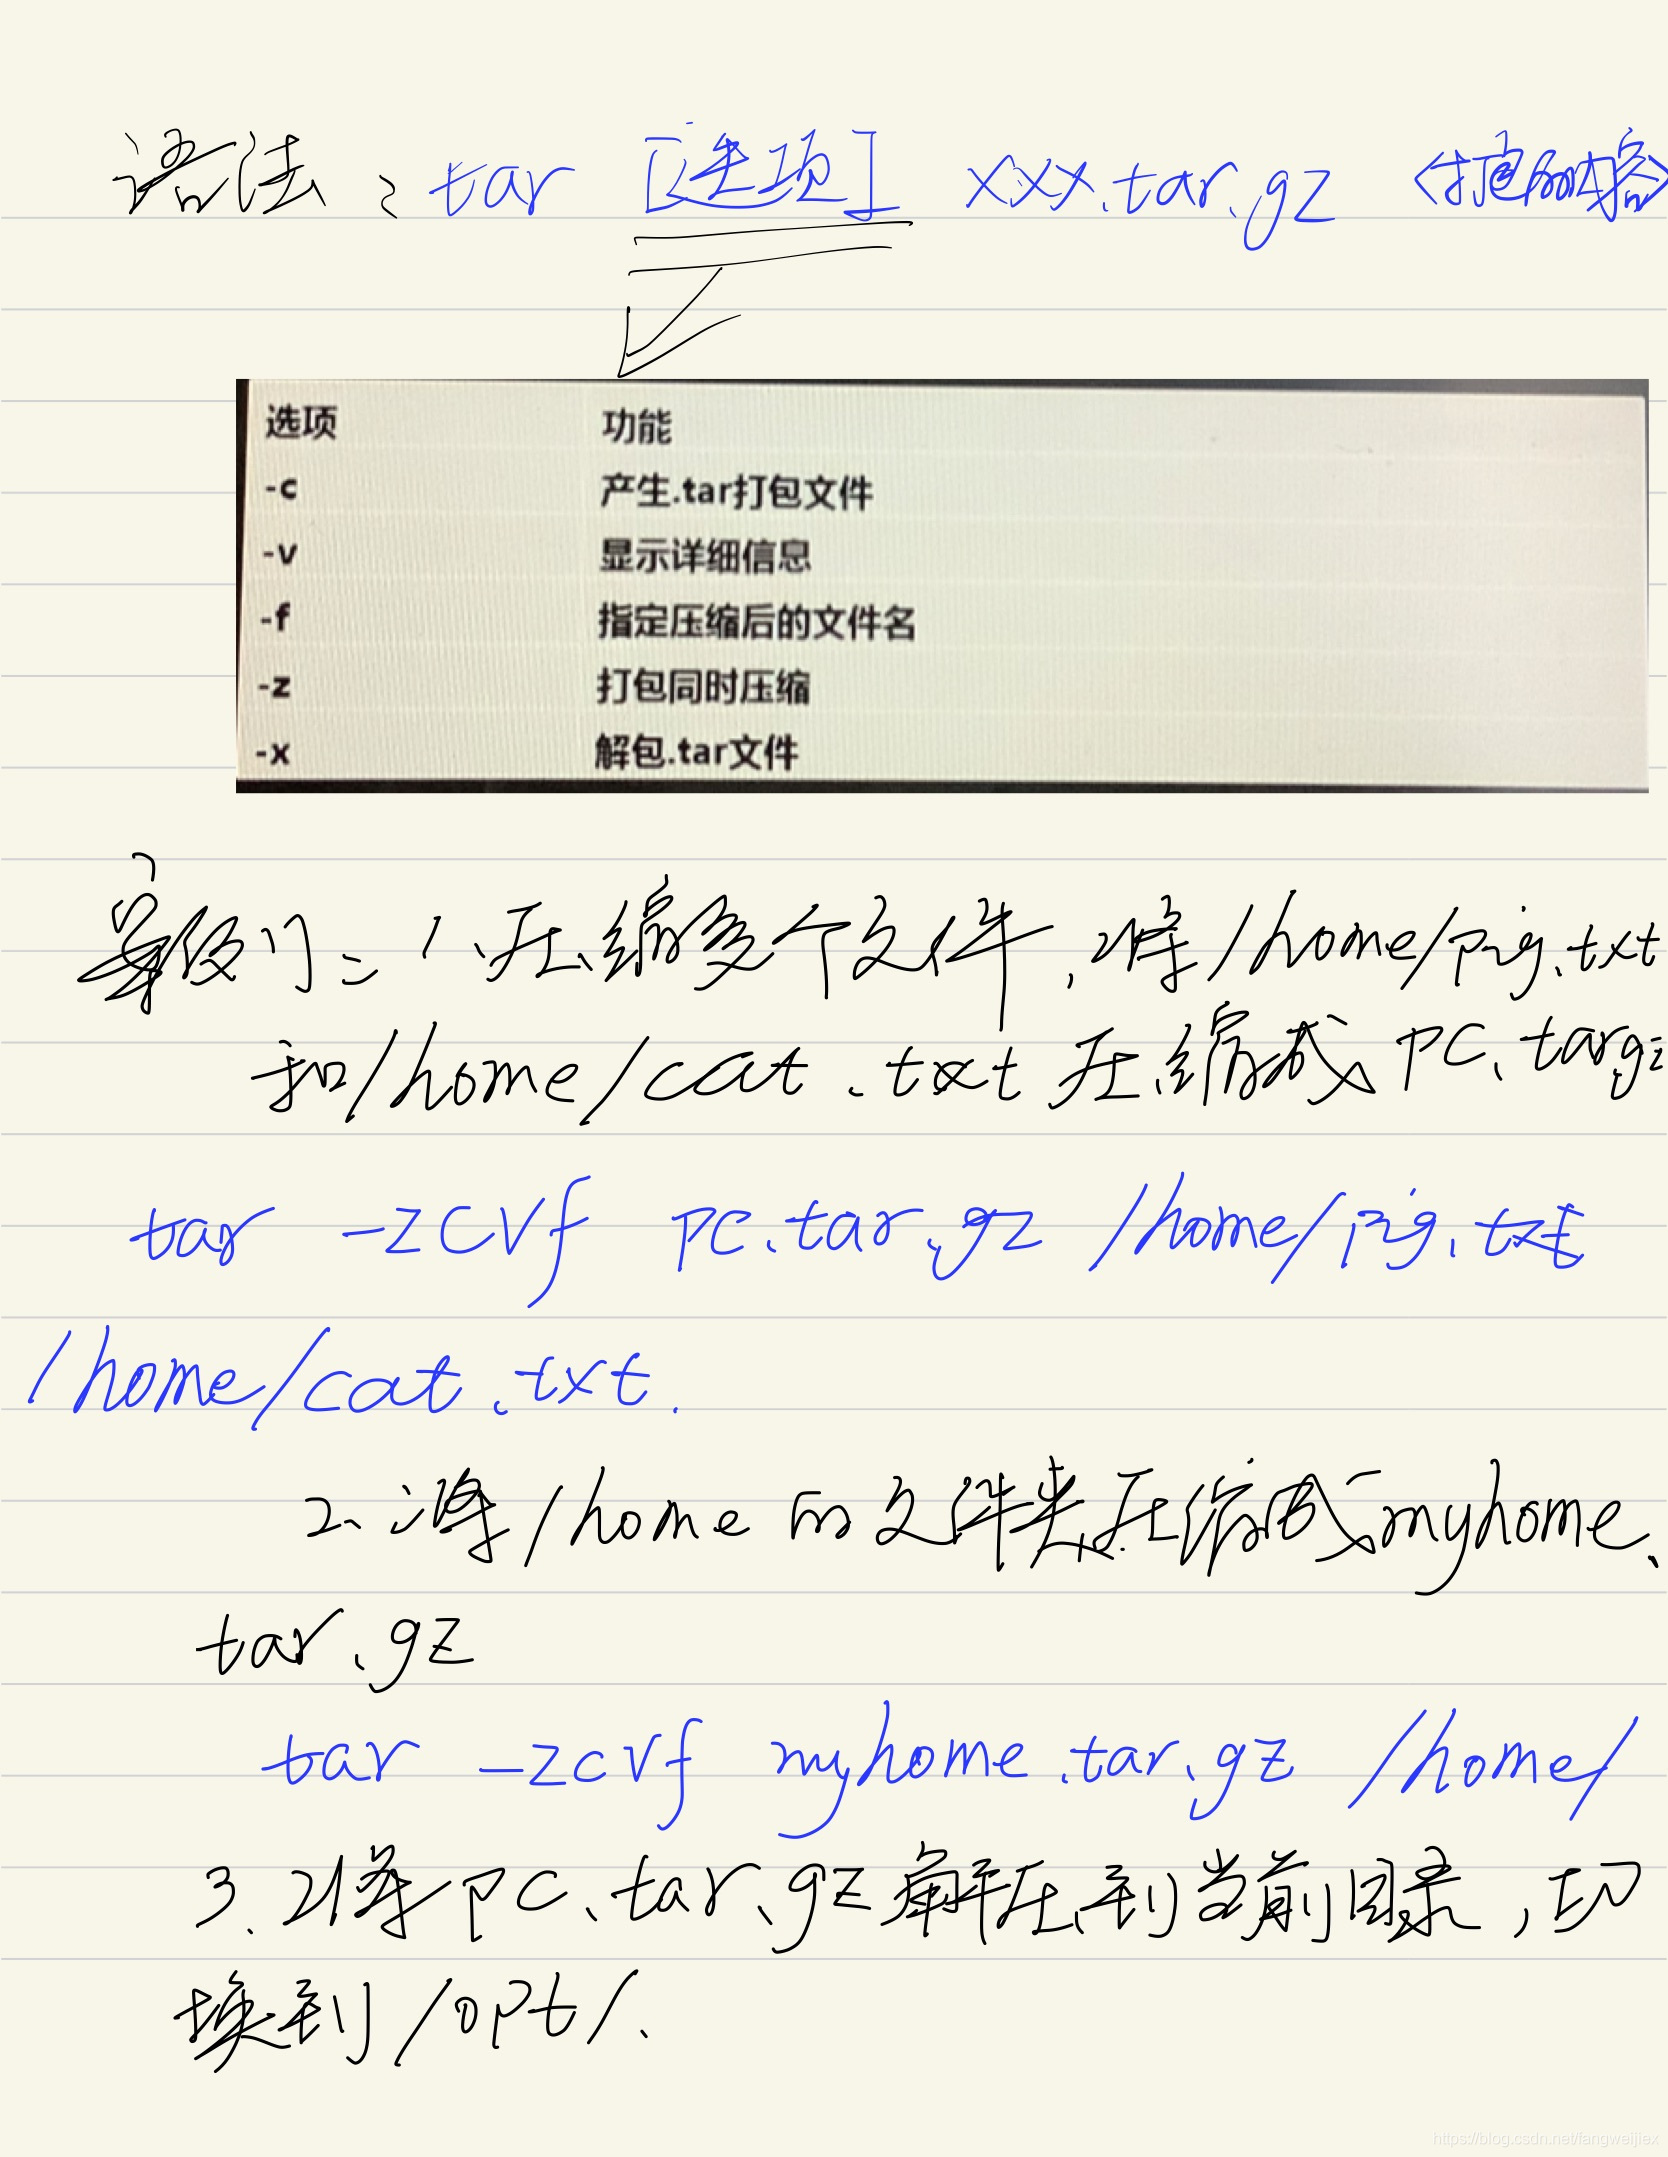 语法：tar [选项] xxx.tar.gz <打包的内容>
选项 功能
-c 产生.tar打包文件
-v 显示详细信息
-f 指定压缩后的文件名
-z 打包同时压缩
-x 解包.tar文件
案例：1、压缩多个文件,将/home/pig.txt
和/home/cat.txt压缩成pc.targz
tar -zcvf pc.tar.gz /home/pig.txt
/home/cat.txt.
2、将/home的文件夹压缩成myhome.
tar.gz
tar -zcvf myhome.tar.gz /home/
3.将pc.tar.gz解压到当前目录,切
换到/opt/.
https://blog.csdn.net/fangweijiex